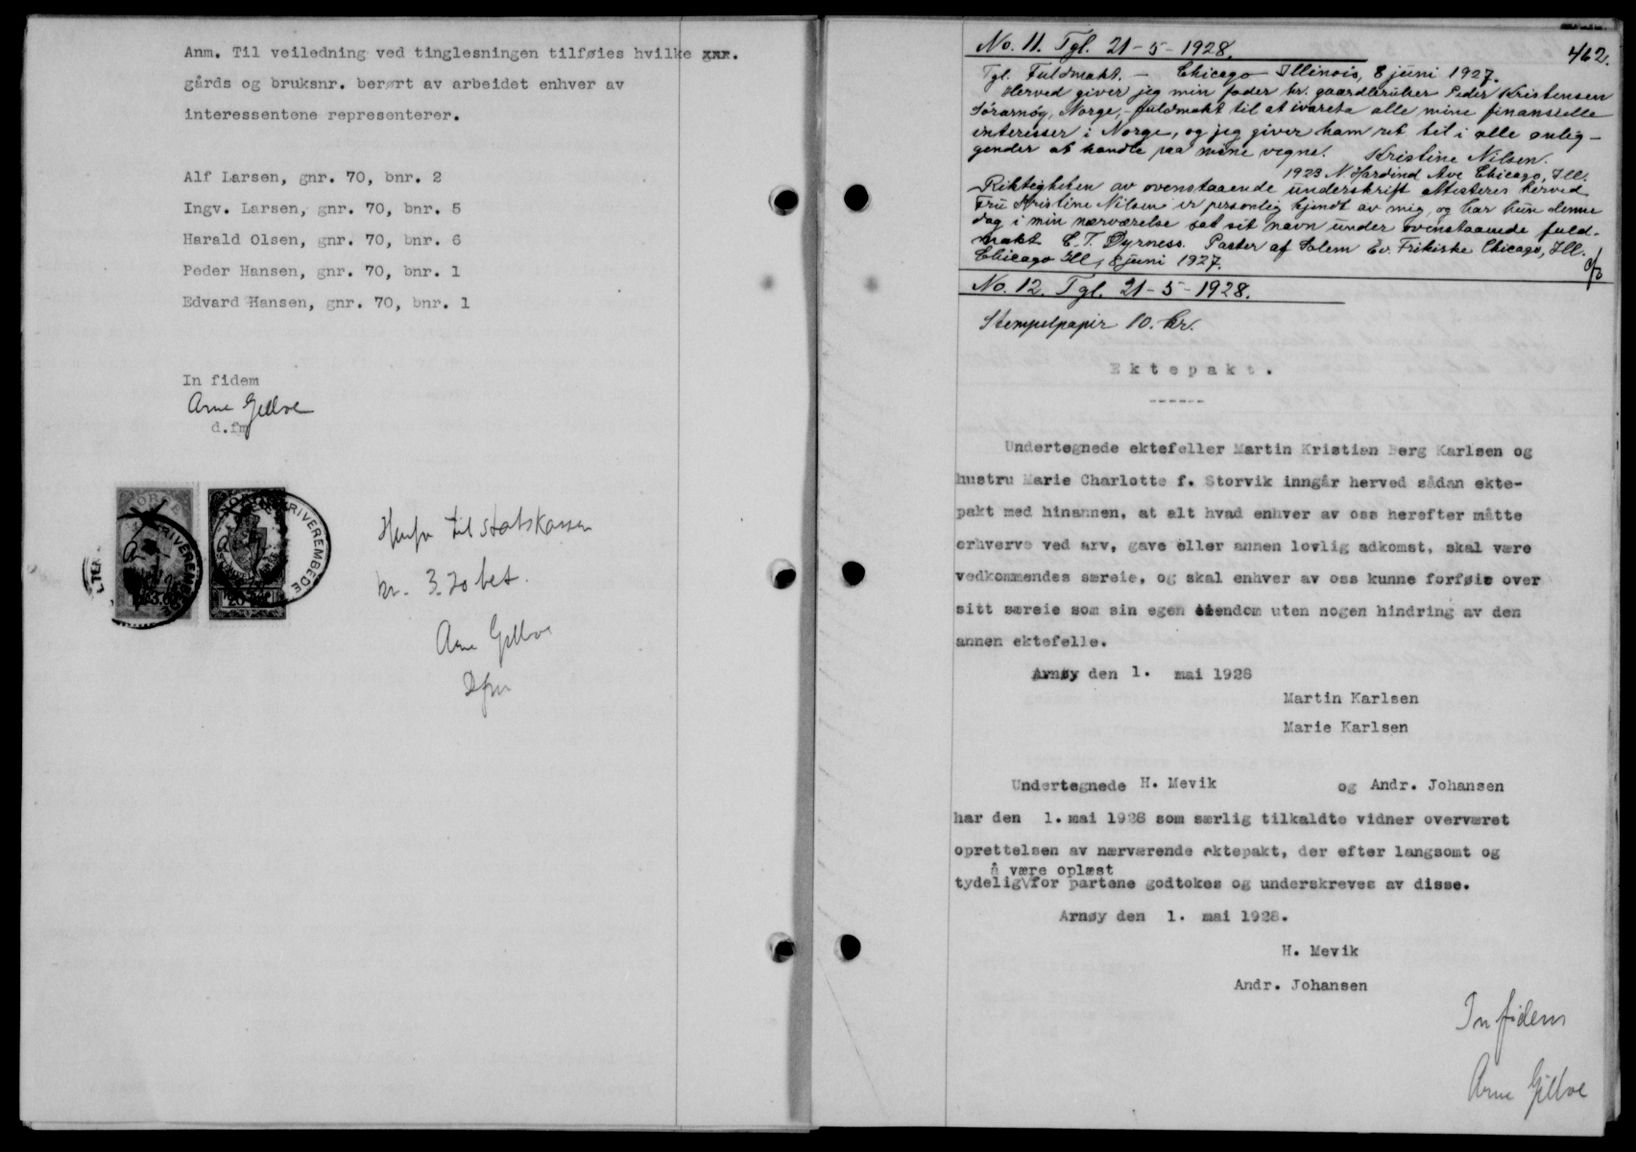 Anm. Til veiledning ved tinglesningen tilføies hvilke xxx.
gårds og bruksnr. berørt av arbeidet enhver av
interessentene representerer.
Alf Larsen, gnr. 70, bnr. 2
Ingv. Larsen, gnr. 70, bnr. 5
Harald Olsen, gnr. 70, bnr. 6
Peder Hansen, gnr. 70, bnr. 1
Edvard Hansen, gnr. 70, bnr. 1
In fidem
Arne Gillve
d.fm
NORGE
SKRIVEREMBEDE
til statskassen
kr. 3.20 bet.
Arne Gillve
Dfm
462.
No. 11. Tgl. 21-5-1928.
Tgl. Fuldmakt. — Chicago Illinois, 8 juni 1927.
Herved giver jeg min fader hr. gaardbruker Peder Kristensen
Sörarnöy, Norge, fuldmakt til at ivareta alle mine finansielle
interesser i Norge, og jeg giver ham ret til i alle anlig-
gender at handle paa mine vegne. Kristine Nilsen.
1923 N Hardind Ave Chicago, Ill.
Riktigheten av ovenstaaende underskrift attesteres herved
Fru Kristine Nilsen er personlig kjendt av mig, og har hun denne
dag i min nærværelse sat sit navn under ovenstaaende fuld-
makt C.T. Dyrness. Pastor af Salem Ev. Frikirke Chicago, Ill.
Chicago Ill, 8 juni 1927.
No. 12. Tgl. 21-5-1928.
Stempelpapir 10. kr.
Ektepakt.
Undertegnede ektefeller Martin Kristian Berg Karlsen og
hustru Marie Charlotte f. Storvik inngår herved sådan ekte-
pakt med hinannen, at alt hvad enhver av oss herefter måtte
erhverve ved arv, gave eller annen lovlig adkomst, skal være
vedkommendes særeie, og skal enhver av oss kunne forføie over
sitt særeie som sin egen eiendom uten nogen hindring av den
annen ektefelle.
Arnøy den 1. mai 1928
Martin Karlsen
Marie Karlsen
Undertegnede H. Mevik og Andr. Johansen
har den 1. mai 1928 som særlig tilkaldte vidner overværet
oprettelsen av nærværende ektepakt, der efter langsomt og
å være oplæst
tydelig for partene godtokes og underskreves av disse.
Arnøy den 1. mai 1928.
H. Mevik
Andr. Johansen
In fidem
Arne Gillve